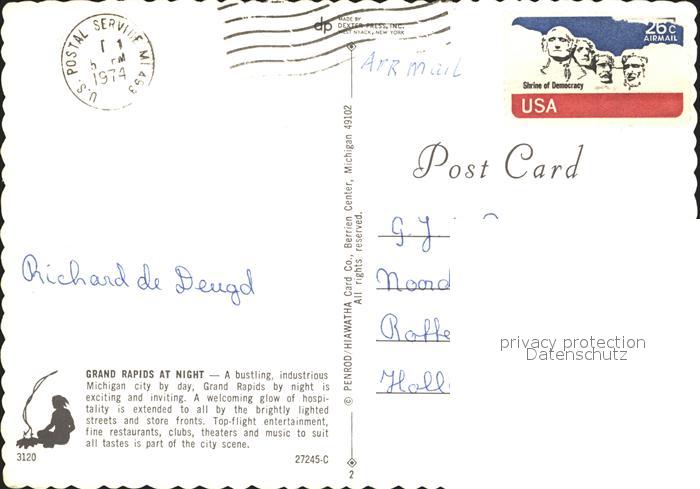 U.S. POSTAL SERVICE MI 493
PM
1974
dp
MADE BY
DEXTER PRESS, INC.
WEST NYACK, NEW YORK
AIR Mail
26c
AIRMAIL
Shrine of Democracy
USA
Post Card
© PENROD/HIAWATHA Card Co., Berrien Center, Michigan 49102
All rights reserved.
G.J.
Noord
Richard de Deugd
Rotte
privacy protection
Datenschutz
Holl
GRAND RAPIDS AT NIGHT — A bustling, industrious
Michigan city by day, Grand Rapids by night is
exciting and inviting. A welcoming glow of hospi-
tality is extended to all by the brightly lighted
streets and store fronts. Top-flight entertainment,
fine restaurants, clubs, theaters and music to suit
all tastes is part of the city scene.
3120
27245-C
2